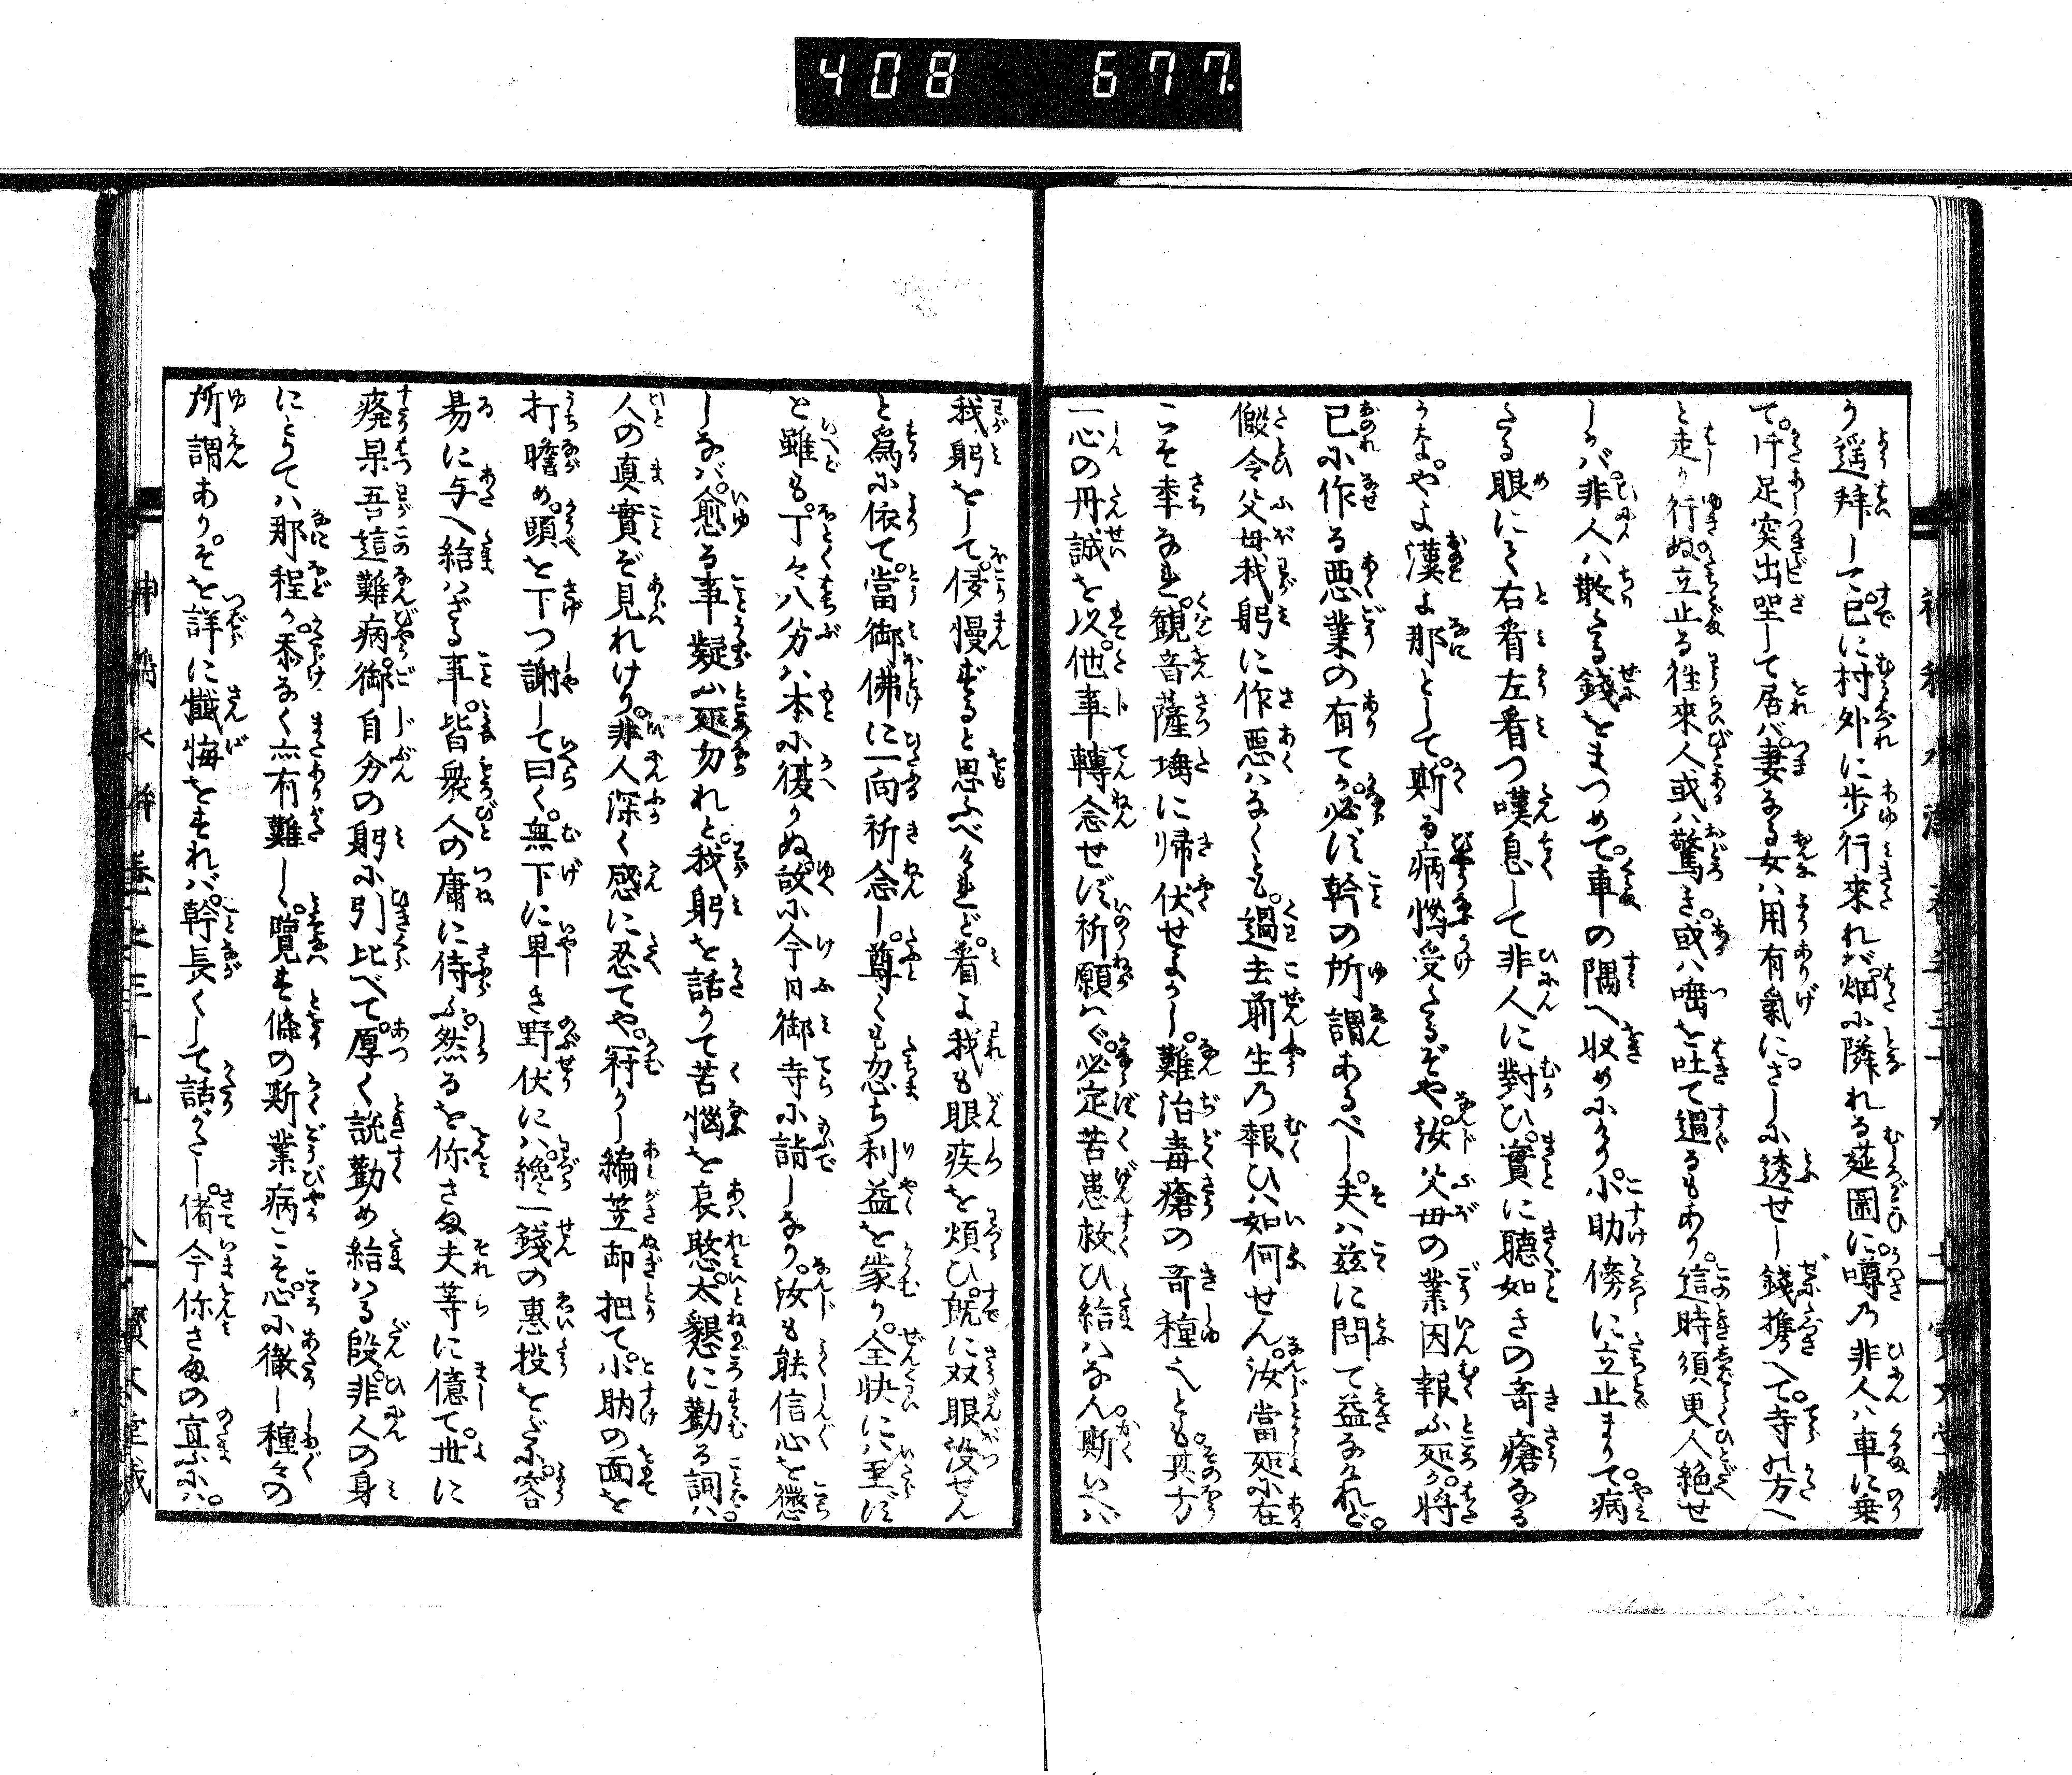 408 677.
う遥拝して。已に村外に歩行来れば。畑に隣れる莚圍に。噂の非人は車に乗
て。片足突出坐して居ば。妻なる女は用有氣に。さしに透せし錢携へて。寺の方へ
と走り行ぬ。立止る往來人或は驚き。或は唾を吐て過るもあり。這時須更人絶せ
しかば。非人は散たる錢をまつめて。車の隅へ収めにけり。小助傍に立止まりて。病
たる眼にて右看左看つ嘆息して非人に對ひ。實に聽如きの奇瘡なる
うなや。やよ漢よ那として。斯る病惱受たるぞや。汝父母の業因報ふ処か。将
己に作る悪業の有てか。必ず幹の所謂あるべし。夫は茲に問て益なけれど。
假令父母我躬に作悪はなくとも。過去前生の報ひは如何せん。汝當処に在
こそ幸なれ。観音薩埵に帰伏せよかし。難治毒瘡の奇種也とも。其方
一心の丹誠を以。他事轉念せず祈願はゞ。必定苦患救ひ給はなん。斯いへば
我躬をして。侈慢ずると思ふべけれど。看よ我も眼疾を煩ひ。既に双眼没せん
と為に依て。當御佛に一向祈念し。尊くも忽ち利益を蒙り。全快には至ず
と雖も。丁々八分は本に復りぬ。故に今日御寺に詣しなり。汝も能信心を懲
しなば。愈る事疑ふ処勿れと。我躬を話りて苦惱を哀愍。太懇に勸る詞は。
人の真實ぞ見れけり。非人深く感に忍てや。冠りし編笠卸把て。小助の面を
打瞻め。頭を下つ謝して曰く。無下に卑き野伏には。纔一錢の惠投をだに。容
易に与へ給はざる事。皆衆人の庸に侍ふ。然るを你さま夫等に億て。世に
廃果吾這難病。御自分の躬に引比べて。厚く説勸め給はる段。非人の身
にとりては那程か。忝なく亦有難し。覽る條の斯業病こそ。心に徹し種々の
所謂あり。そを詳に懺悔をすれば。幹長くして話がたし。偖今你さまの宣ふは。